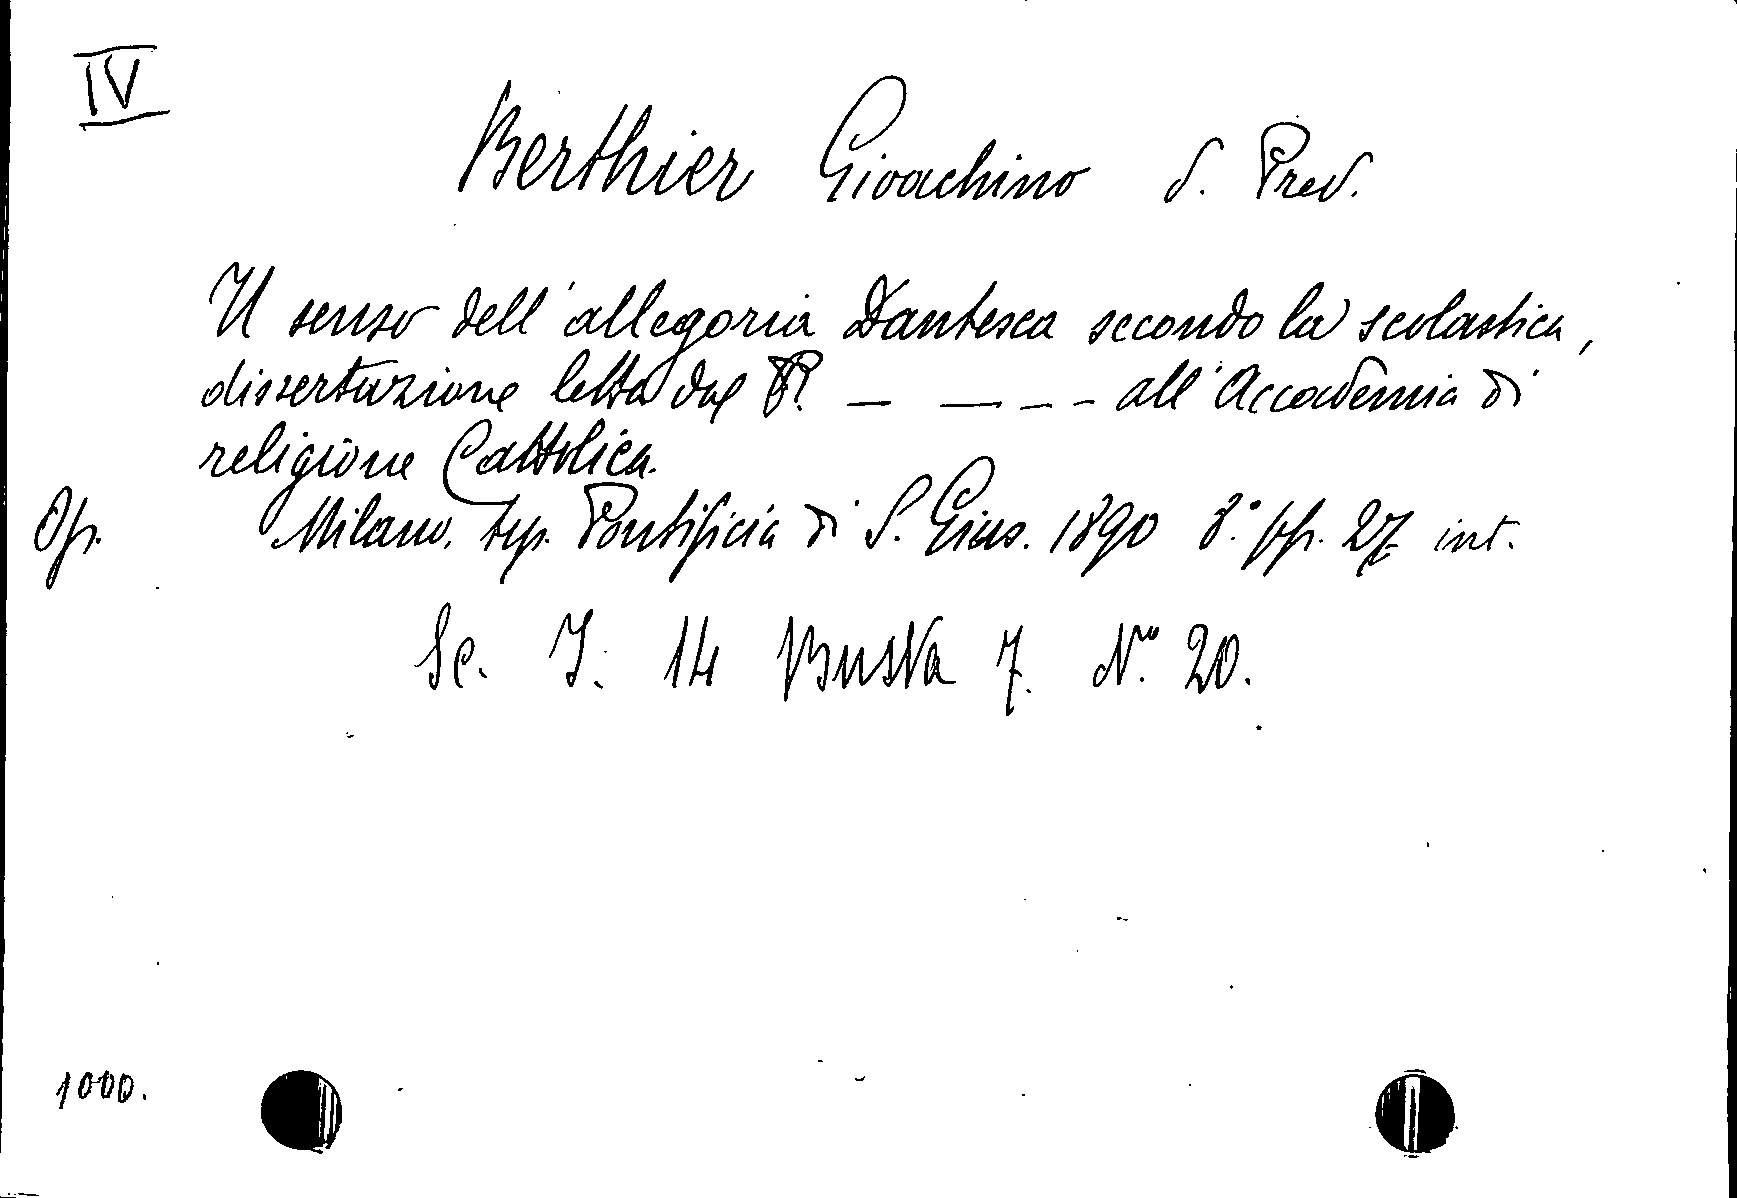 IV
Berthier Gioachino d. Pred.
Il senso dell'allegoria Dantesca secondo la scolastica,
dissertazione letta dal P. _ _ _ _ _ all'Accademia di
religione Cattolica.
Op. Milano. typ. Pontificia di S. Gius. 1890 8.° pp. 27 int.
Sc. I. 14 Busta 7. N.º 20.
1000.